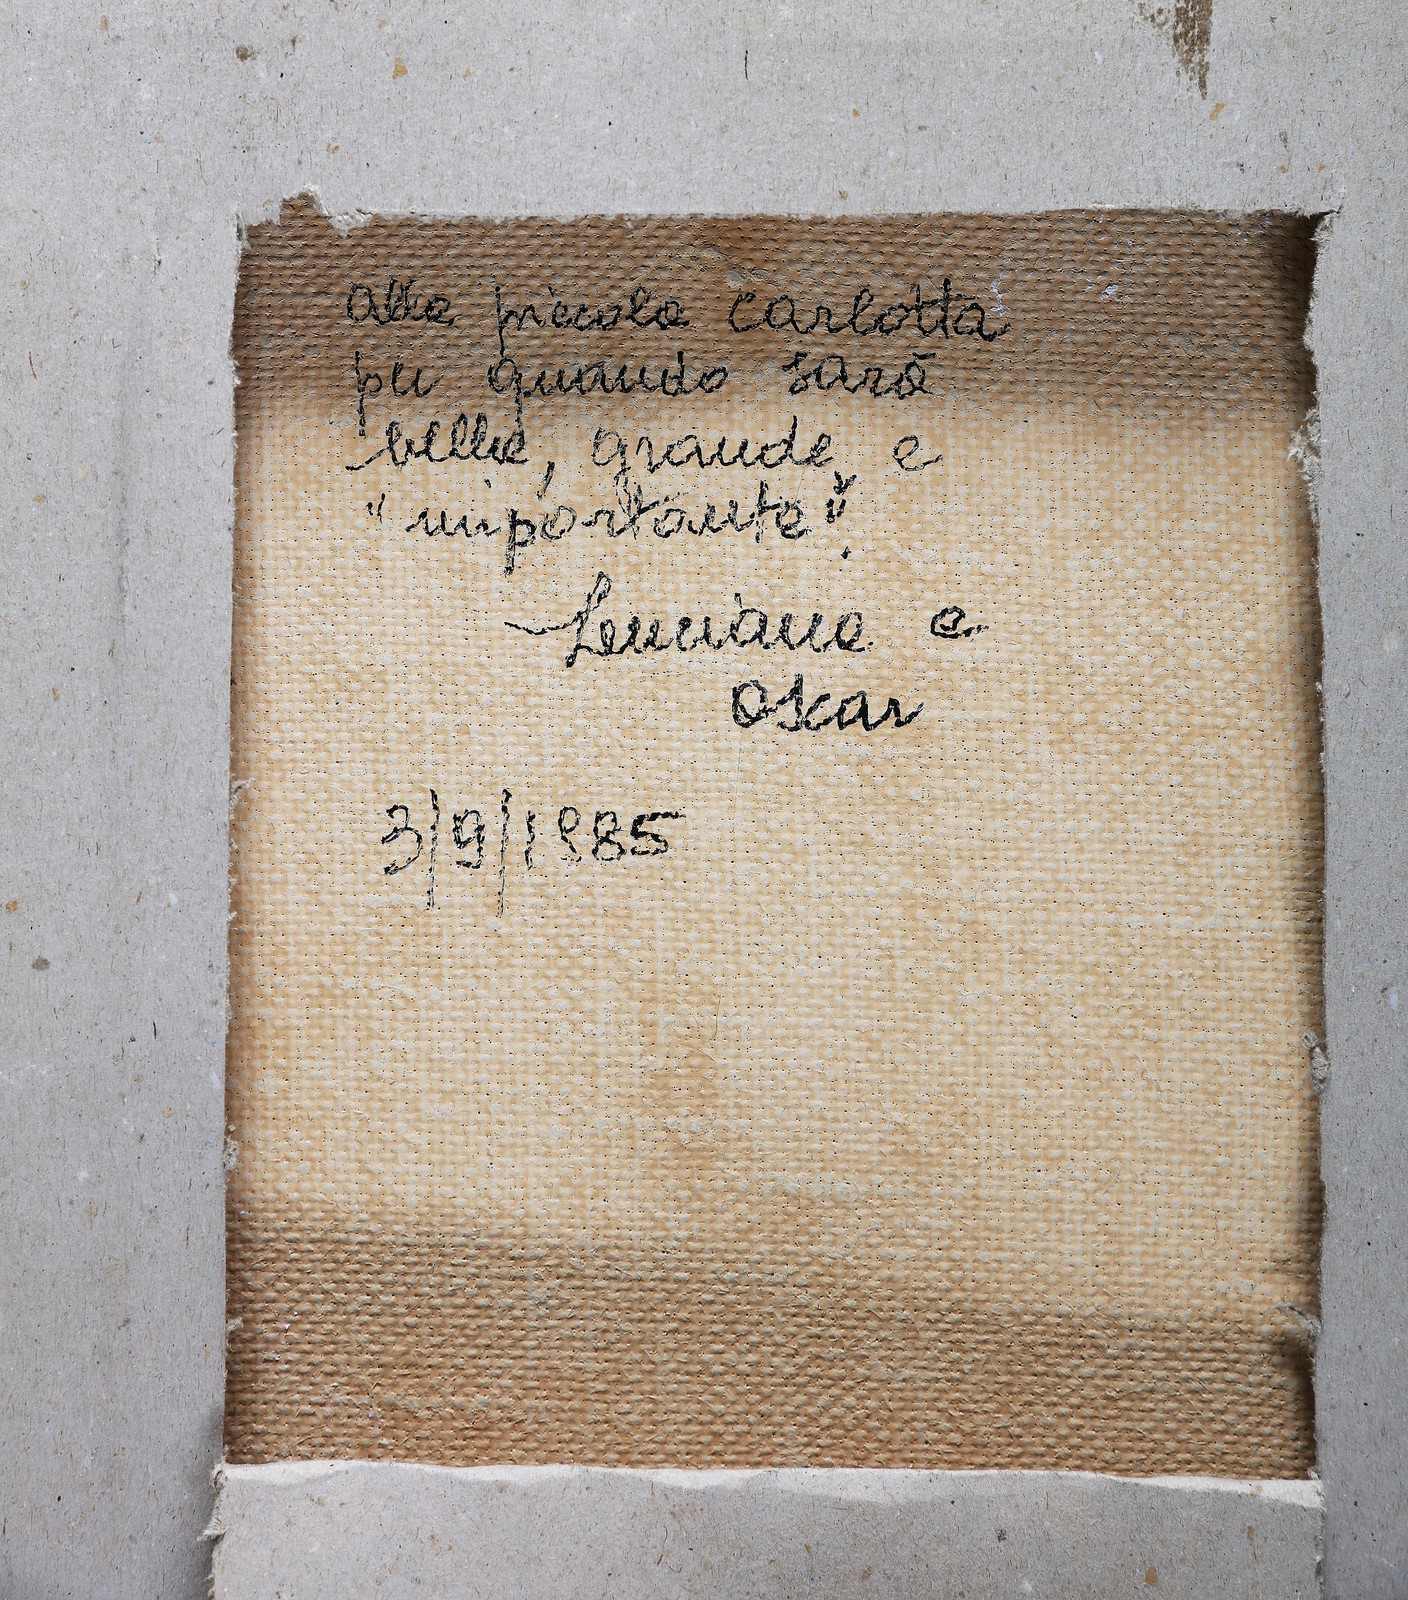 Alla piccola Carlotta
per quando sarà
bella, grande e
"importante".
Luciana e
Oscar
3/9/1985